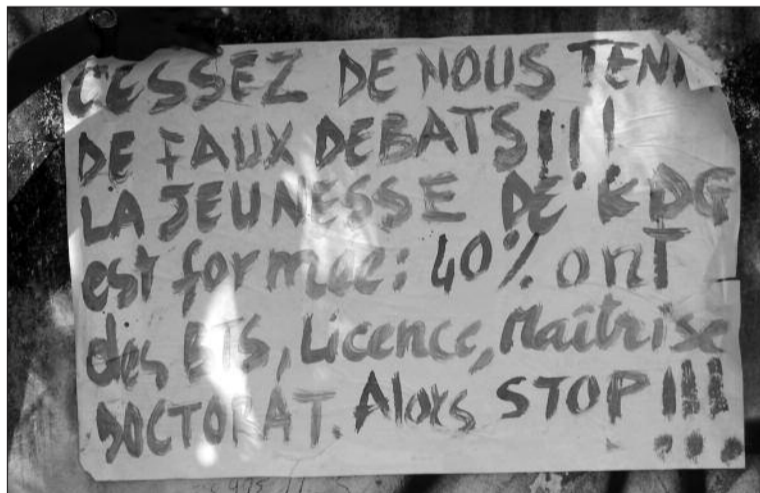 CESSEZ DE NOUS TENIR
DE FAUX DEBATS!!!
LA JEUNESSE DE KDG
est formée: 40% ont
des BTS, Licence, Maîtrise
DOCTORAT. Alors STOP!!!